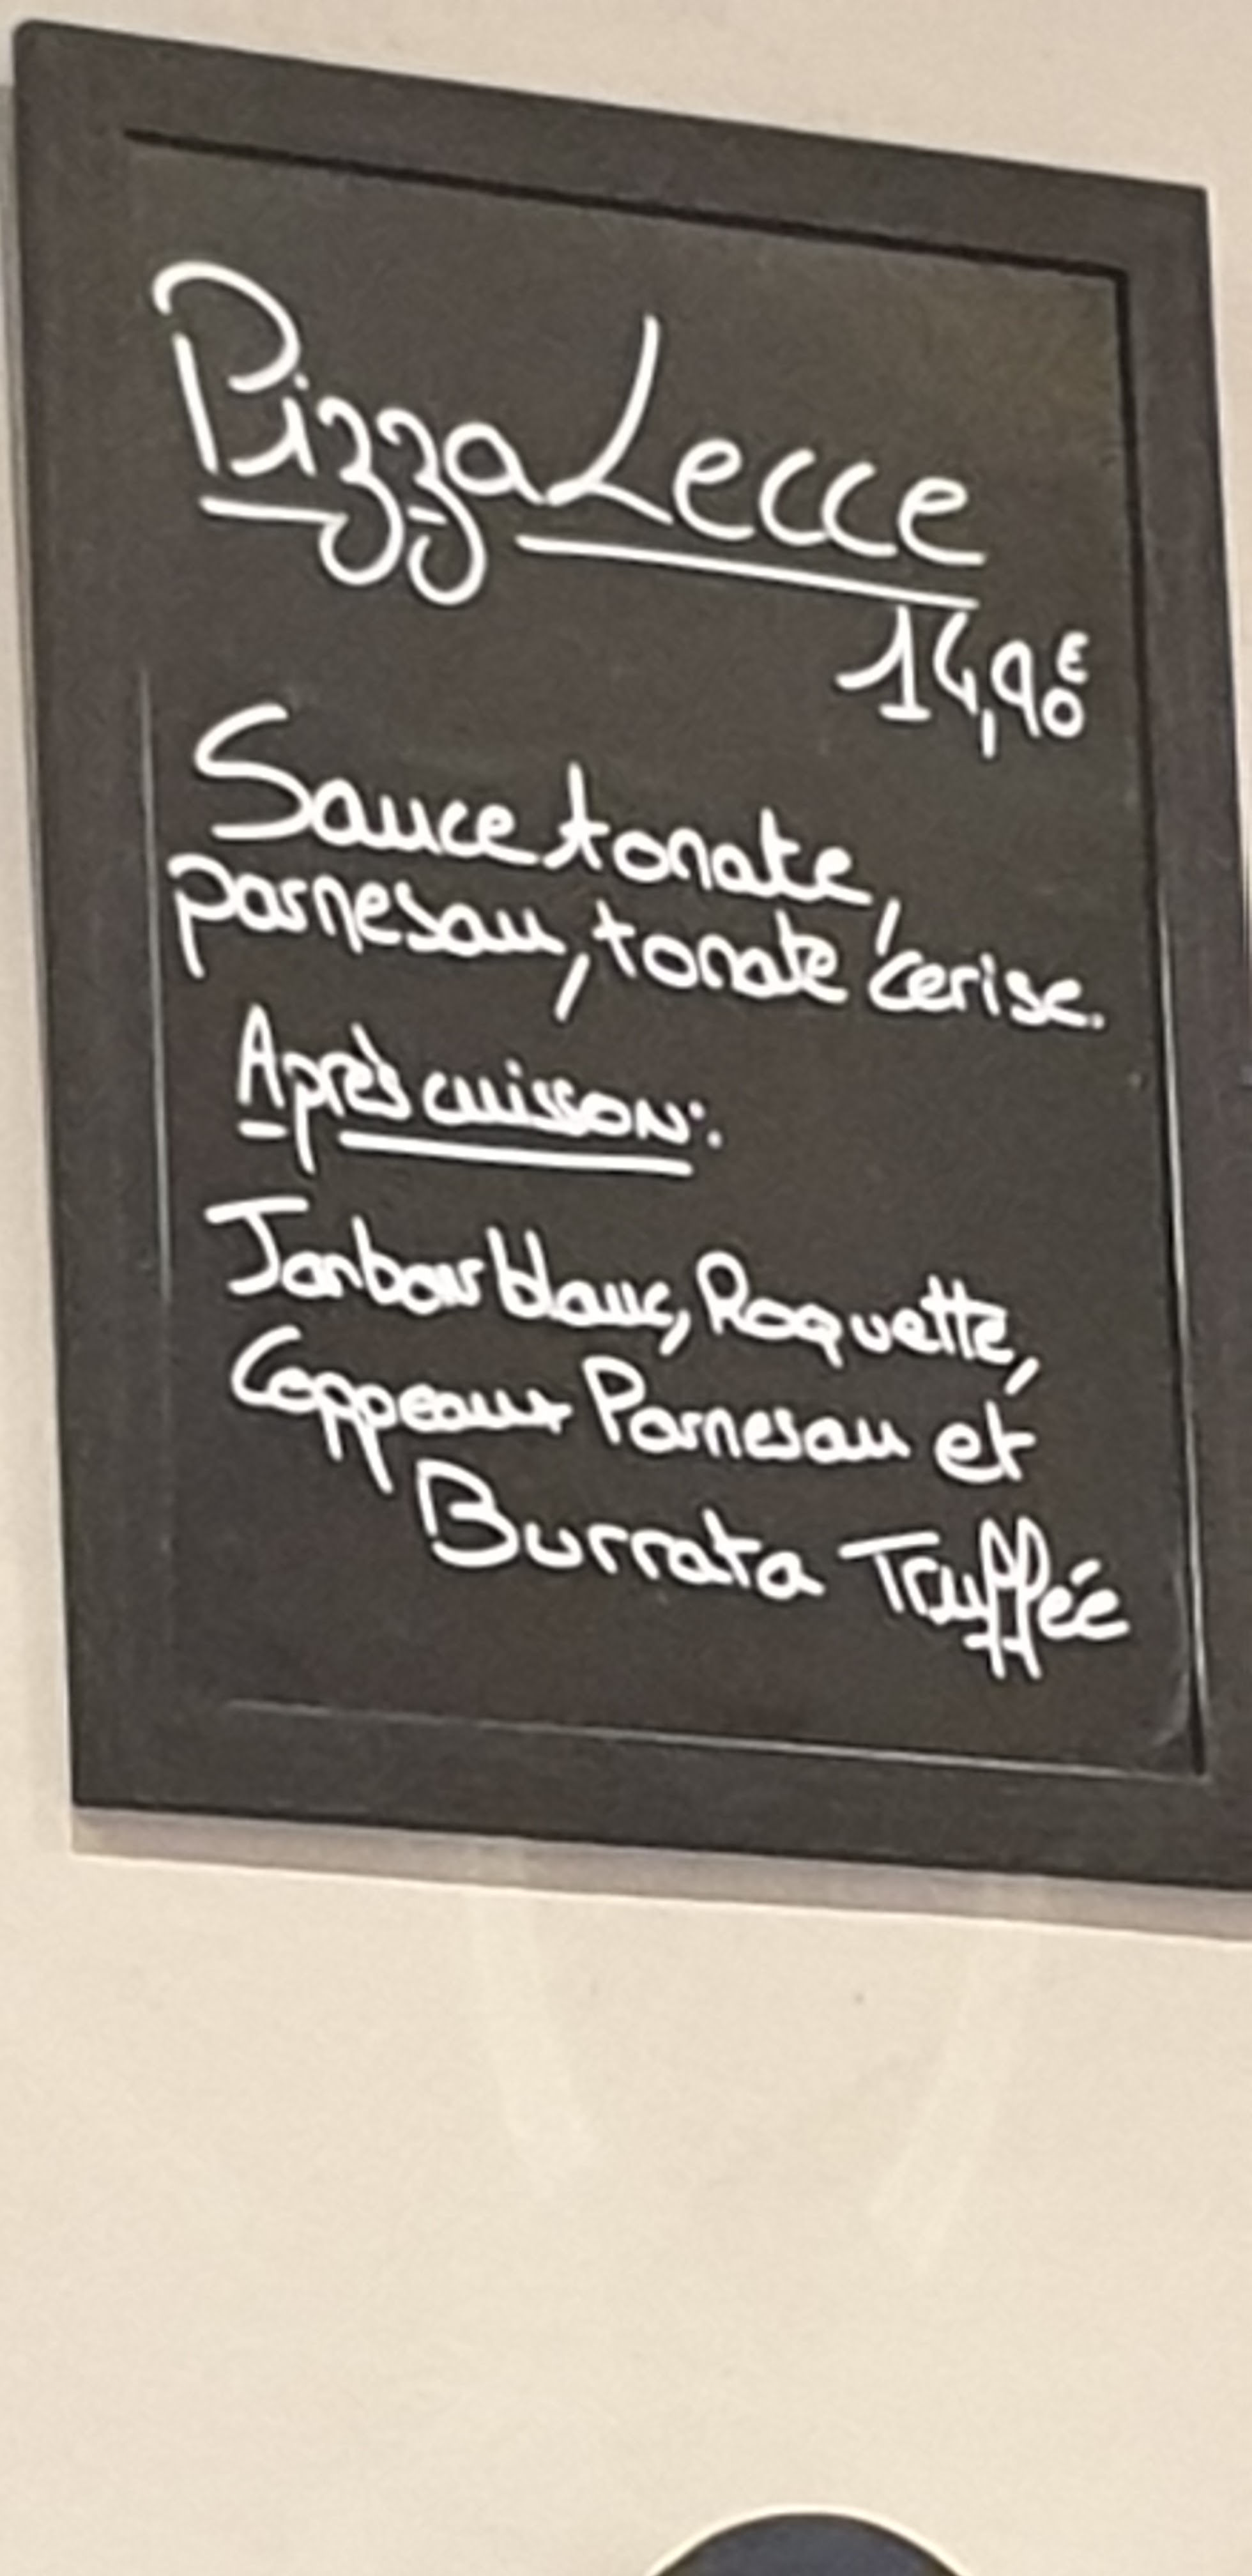 Pizza Lecce
14,90€
Sauce tomate,
parmesan, tomate cerise.
Après cuisson:
Jambon blanc, Roquette,
Coppeaux Parmesan et
Burrata Truffée